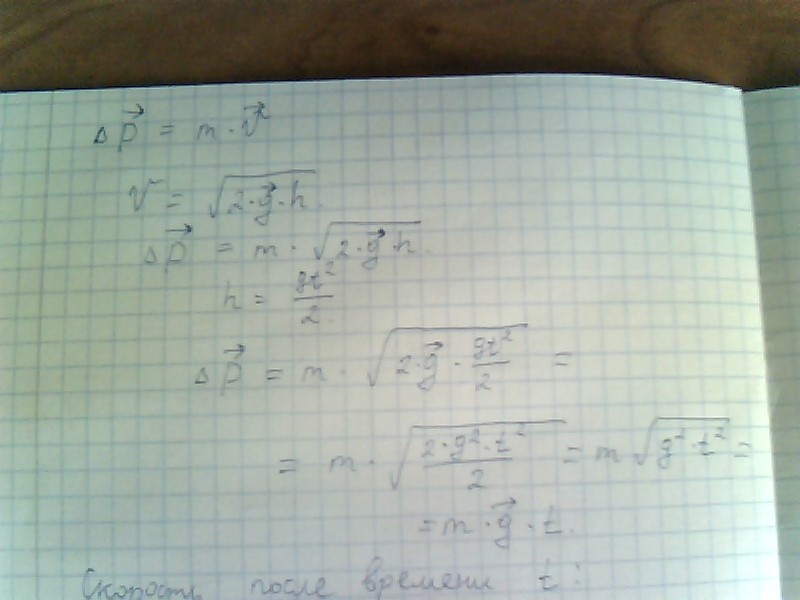 Δp⃗ = m · v⃗
v = √(2·g⃗·h).
Δp⃗ = m · √(2·g⃗·h).
h = gt²/2.
Δp⃗ = m · √(2·g⃗ · gt²/2) =
= m · √(2·g²·t²/2) = m √(g²·t²) =
= m · g⃗ · t.
Скорость после времени t: